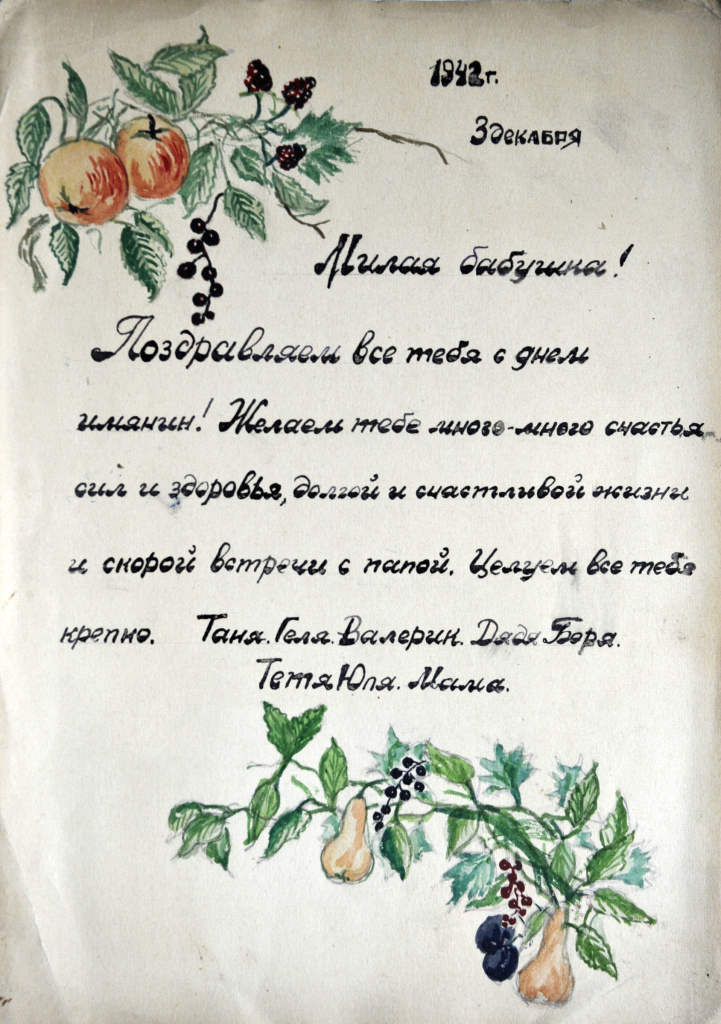 1942 г.
3 декабря
Милая бабушка!
Поздравляем все тебя с днем
имянин! Желаем тебе много-много счастья
сил и здоровья, долгой и счастливой жизни
и скорой встречи с папой. Целуем все тебя
крепко. Таня. Геля. Валерик. Дядя Боря.
Тетя Юля. Мама.